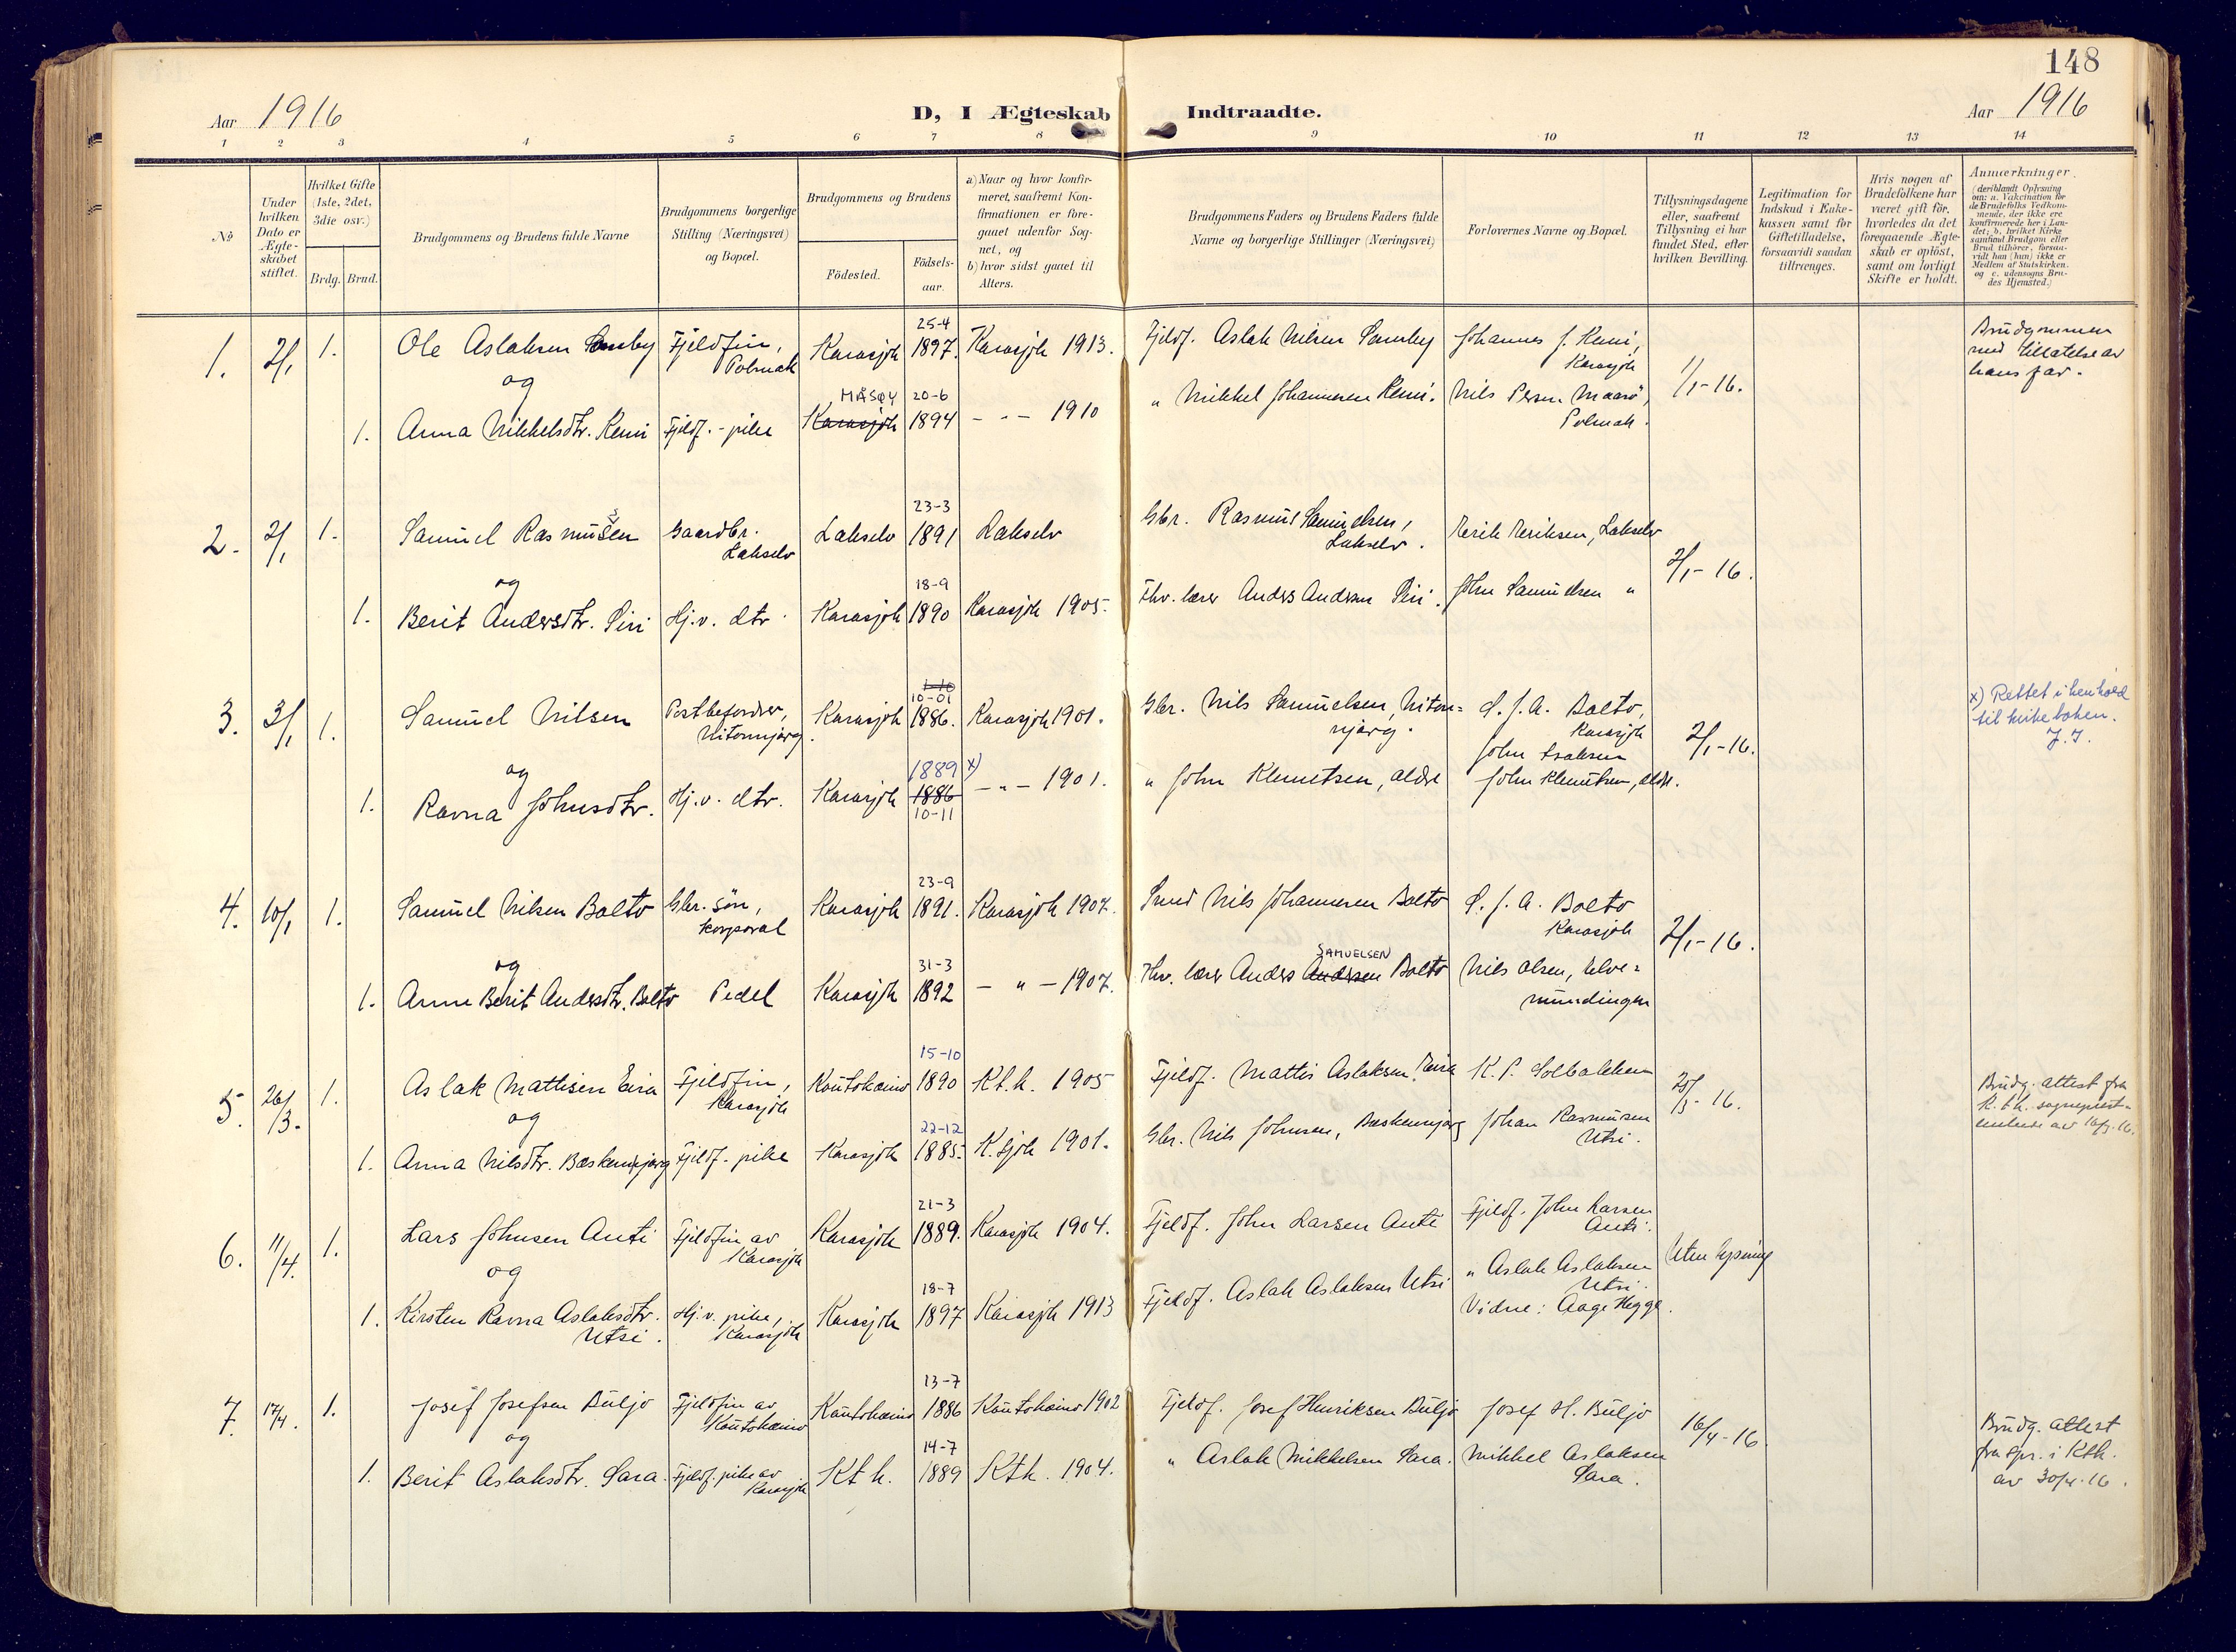 148
Aar 1916
D, I Ægteskab Indtraadte.
Aar 1916
1 2 3 4 5 6 7 8 9 10 11 12 13 14
No
Under hvilken Dato er Ægteskabet stiftet.
Hvilket Gifte (1ste, 2det, 3die osv.)
Brdg. Brud.
Brudgommens og Brudens fulde Navne
Brudgommens borgerlige Stilling (Næringsvei) og Bopæl.
Brudgommens og Brudens
Födested.
Födsels-aar.
a) Naar og hvor konfirmeret, saafremt Konfirmationen er foregaaet udenfor Sognet, og
b) hvor sidst gaaet til Alters.
Brudgommens Faders og Brudens Faders fulde Navne og borgerlige Stillinger (Næringsvei)
Forlovernes Navne og Bopæl.
Tillysningsdagene eller, saafremt Tillysning ei har fundet Sted, efter hvilken Bevilling.
Legitimation for Indskud i Enkekassen samt for Giftetilladelse, forsaavidt saadan tiltrænges.
Hvis nogen af Brudefolkene har været gift för, hvorledes da det foregaaende Ægteskab er oplöst, samt om lovligt Skifte er holdt.
Anmærkninger.
(deriblandt Oplysning om: a. Vakcination for de Brudefolks Vedkommende, der ikke ere konfirmerede her i Landet; b. hvilket Kirkesamfund Brudgom eller Brud tilhörer, forsaavidt han (hun) ikke er Medlem af Statskirken. og c. udensogns Brudes Hjemsted.)
1. 2/1 1. Ole Aslaksen Somby Fjeldfin, Polmak Karasjok 25-4 1897. Karasjok 1913. Fjeldf. Aslak Nilsen Somby Johannes J. Kemi, Karasjok 1/1-16. Brudgommen med tillatelse av hans far.
og
1. Anna Mikkelsdtr. Kemi Fjeldf.-pike MÅSØY Karasjok 20-6 1894 - " - 1910 " Mikkel Johannesen Kemi. Nils Persen Maasö, Polmak.
2. 2/1 1. Samuel Rasmussen Gaardbr. Lakselv Lakselv 23-3 1891 Lakselv Gbr. Rasmus Samuelsen, Lakselv. Erik Eriksen, Lakselv 2/1-16.
og
1. Berit Andersdtr. Siri Hj.v. dtr. Karasjok 18-9 1890 Karasjok 1905. Fhv. lærer Anders Andersen Siri. John Samuelsen "
3. 3/1 1. Samuel Nilsen Postbefordrer, Nitonnjarg. Karasjok 1-10 10-01 1886. Karasjok 1901. Gbr. Nils Samuelsen, Niton=njarg. S. J. A. Balto, Karasjok John Isaksen 2/1-16. x) Rettet i henhold til kirkeboken. J. J.
og
1. Ravna Johnsdtr. Hj.v. dtr. Karasjok 1889 x) 1886 10-11 - " - 1901. " John Klemetsen, ældre John Klemetsen, ældre.
4. 10/1 1. Samuel Nilsen Balto Gbr. sön, korporal Karasjok 23-9 1891. Karasjok 1907. Smed Nils Johannesen Balto S. J. A. Balto Karasjok 2/1-16.
og
1. Anne Berit Andersdtr. Balto Pedel Karasjok 31-3 1892 - " - 1907. Fhv. lærer Anders Andersen SAMUELSEN Balto Nils Olsen, Elve=mundingen
5. 26/3. 1. Aslak Mathisen Eira Fjeldfin, Karasjok Kautokeino 15-10 1890 Kt.k. 1905 Fjeldf. Mattis Aslaksen Eira K. P. Solbakken 25/3-16. Brudg. attest fra K.t.k. sogneprest-embede av 16/3-16.
og
1. Anna Nilsdtr. Bæskennjarg Fjeldf. pike Karasjok 22-12 1885. K.sjok 1901. Gbr. Nils Johnsen, Bæskennjarg Johan Rasmussen Utsi.
6. 11/4. 1. Lars Johnsen Anti Fjeldfin av Karasjok Karasjok 21-3 1889. Karasjok 1904. Fjeldf. John Larsen Anti Fjeldf. John Larsen Anti. Uten lysning
og
1. Kirsten Ravna Aslaksdtr. Utsi. Hj.v. pike, Karasjok Karasjok 18-7 1897 Karasjok 1913 Fjeldf. Aslak Aslaksen Utsi " Aslak Aslaksen Utsi. Vidne: Aage Hegge.
7. 17/4. 1. Josef Josefsen Buljo Fjeldfin av Kautokeino Kautokeino 13-7 1886 Kautokeino 1902 Fjeldf. Josef Henriksen Buljo Josef H. Buljo 16/4-16. Brudg. attest fra spr. i Ktk. av 30/4.16.
og
1. Berit Aslaksdtr. Sara. Fjeldf. pike av Karasjok Kt k. 14-7 1889 Ktk. 1904. " Aslak Mikkelsen Sara. Mikkel Aslaksen Sara.